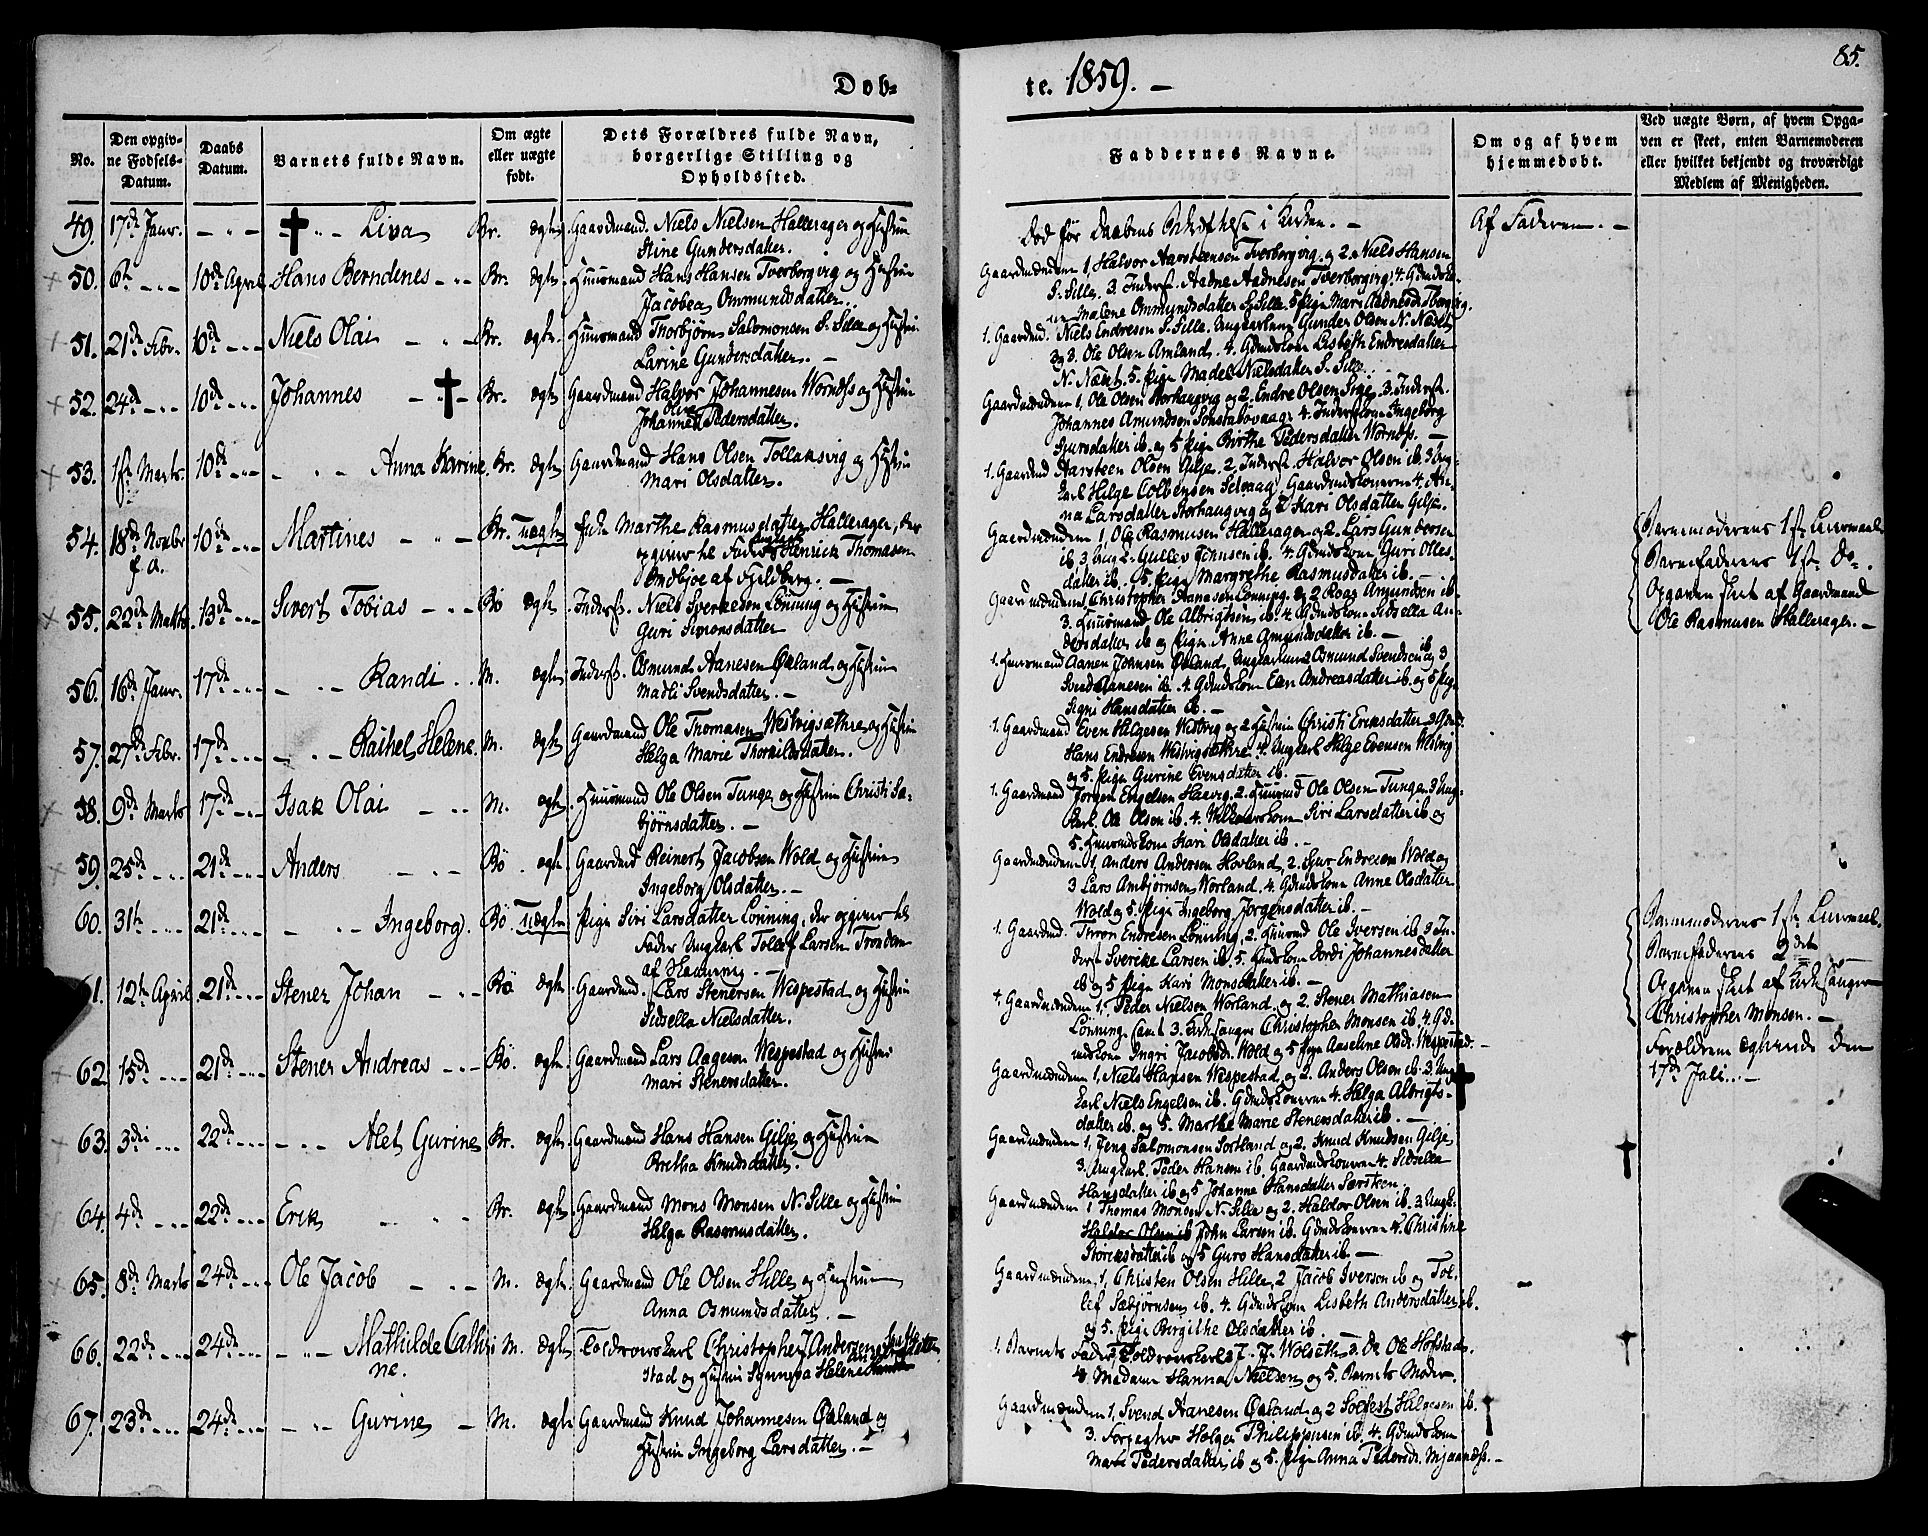 Døb-
te. 1859. —
85.
No.
Den opgiv-
ne Fødsels-
Datum.
Daabs
Datum.
Barnets fulde Navn.
Om ægte
eller uægte
født.
Dets Forældres fulde Navn,
borgerlige Stilling og
Opholdssted.
Faddernes Navne.
Om og af hvem
hjemmedøbt.
Ved uægte Børn, af hvem Opga-
ven er skeet, enten Barnemoderen
eller hvilket bekjendt og troværdigt
Medlem af Menigheden.
49. 17de Janr. Liva Br. ægte. Gaardmand Niels Nielsen Hallerager og Hustru
Stine Gundersdatter.
Død før Daabens Bekræftelse i Kirken. —
Af Faderen. —
50. 6te 10de April Hans Berndenes Br. ægte. Huusmand Hans Hansen Tverborgvig og Hustru
Jacobea Ommundsdatter.
Gaardmændene 1, Halvor Aarsteensen Tverborgvig og 2. Niels Hansen
S. Sille. 3. Inderst Aadne Aadnesen Tverborgvig. 4. Gdmdsko-
ne Malene Ommundsdatter S. Sille. 5 Pige Mari Aadnesd.
51. 21de Febr. 10de Niels Olai Br. ægte. Huusmand Thorbjørn Salomonsen S. Sille og Hustru
Larine Gundersdatter. —
1. Gaardmd. Niels Endresen S. Sille. Ungkarlene Gunder Olsen N. Næset
og 3. Ole Olsen Amland. 4. Gdmdskone Lisbeth Endresdatter
N. Næset. 5. Pige Madel Nielsdatter S. Sille.
52. 24de 10de Johannes Br. ægte Gaardmand Halvor Johannesen Wornæs og Hustru
Johanne Oline Pedersdatter.
Gaardmændene 1, Ole Olsen Storhaugvig og 2. Endre Olsen 3. Inderst.
Johannes Amundsen 4. Inderstkone Ingeborg
Sjursdatter ib. og 5 Pige Birthe Pedersdatter Wornæs. —
53. 1ste Marts. 10de Anna Karine. Br. ægte Gaardmand Hans Olsen Tollaksvig og Hustru
Mari Olsdatter.
1. Gaardmd Aarsteen Olsen Gilje. 2. Inderst. Halvor Olsen ib. 3 Ung-
karl Helge Colbensen Selvaag. Gaardmdskonerne 4. An-
na Larsdatter Storhaugvig og 5 Kari Olsdatter Gilje.
54. 18de Novbr f. A. 10de Martines Br. uægte Marthe Rasmusdatter Hallerager, der
opgiver til Fader Ungkarl Henrick Thomasen
Indbjoe af Fjeldberg. —
Gaardmændene 1, Ole Rasmussen Hallerager og 2. Lars Gundersen
ib. 3. Ung- Gullev Johnsen ib. 4. Gdmdskone Guri Olles-
datter ib. 5. Pige Margrethe Rasmusdatter ib. —
Barnemoderens 1ste Leiermaal.
Barnefaderens 1ste Do.
Opgaven skeet af Gaardmand
Ole Rasmusen Hallerager. —
55. 22de Marts. 13de Sivert Tobias Bø ægte. Inderst. Niels Sverkesen Lønning og Hustru
Guri Simonsdatter
Gaardmændene 1 Christopher Aanesen Lønning, og 2 Roas Amundsen ib
3. Huusmand Ole Albrigtsen ib. 4. Gdmdskone Sidsella An-
dersdatter ib og Pige Anne Amundsdatter ib. —
56. 16de Janr. 17de Randi M. ægte Inderst. Osmund Aanesen Økland og Hustru
Madli Svendsdatter. —
1. Huusmand Aanen Johnsen Økland, Ungkarlene 2 Osmund Svendsen ib 3
Svend Aanesen ib. 4. Gdmdskone Elen Andreasdatter ib. og 5 Pige
Signi Hansdatter ib. —
57. 27de Febr. 17de Rachel Helene. M. ægte Gaardmand Ole Thomasen Westvigsæthre og Hustru
Helga Marie Thorkildsdatter.
1. Gaardmand Even Helgesen Westvig og 2 Hustru Christi Eriksdatter 3 Gdmd.
Hans Endresen Westvigsæthre. 4. Ungkarl Helge Evensen Westvig
og 5. Pige Gurine Evensdatter ib.
58. 9de Marts 17de Isak Olai M. ægte. Huusmand Ole Olsen Tunge og Hustru Christi Sæ-
bjørnsdatter. —
1. Gaardmand Jørgen Engelsen Haavig. 2. Huusmd Ole Olsen Tunge. 3 Ung-
karl Ole Olsen ib. 4. Siri Larsdatter ib og
5. Huusmdskone Kari Olsdatter ib. —
59. 25de 21de Anders Bø. ægte. Gaardmd Reinert Jacobsen Wold og Hustru
Ingeborg Olsdatter. —
Gaardmændene 1, Anders Andersen Hovland, 2. Sjur Endresen Wold og
3 Lars Ambjørnsen Worland. 4. Gdmdskone Anne Olsdatter
Wold og 5. Pige Ingeborg Jørgensdatter ib. —
60. 31te 21de Ingeborg. Bø. uægte Pige Siri Larsdatter Lønning, der opgiver til
Fader Ungkarl Tollef Larsen
af
1. Gaardmd. Thron Endresen Lønning, 2. Huusmd Ole Iversen ib 3 In-
derst Svercke Larsen ib. Dordi Johannesdatter
ib og 5 Pige Kari Monsdatter ib. —
Barnemoderens 1ste Leiermaal.
Barnefaderens 2det
Opgaven skeet af Kirkesanger
Christopher Monsen. —
61. 12te April 21de Stener Johan Bø ægte. Gaardmd. Lars Stenersen Wespestad og Hustru
Sidsella Nielsdatter.
Gaardmændene 1, Peder Nielsen Worland, og 2. Stener Mathiasen
Lønning samt 3. Kirkesanger Christopher Monsen ib. 4. Gd-
mdskone Ingri Jacobsdr. Wold og 5 Pige Aaseline Olsdr. Wespestad. —
Forældrene ægteviede den
17de Juli. —
62. 15de 21de Stener Andreas Bø. ægte. Gaardmand Lars Aagesen Wespestad og Hustru
Mari Stenersdatter.
Gaardmændene 1, Niels Hansen Wespestad, og 2. Anders Olsen ib. 3. Ung-
karl Niels Engelsen ib. Gdmdskonerne 4. Helga Albrigts-
datter ib. og 5. Marthe Marie Stenersdatter ib. —
63. 3die 22de Alet Gurine Br. ægte. Gaardmand Hans Hansen Gilje og Hustru
Bretha Knudsdatter.
Gaardmændene 1, Jens Salomonsen Sortland og 2. Knud Knudsen Gilje
3. Ungkarl. Peder Hansen ib. Gaardmdskonerne 4. Sidsella
Hansdatter ib og 5 Johanne Hansdatter Særsteen.
64. 4de 22de Erik Br. ægte. Gaardmand Mons Monsen N. Sille og Hustru
Helga Rasmusdatter.
Gaardmændene 1 Thomas Monsen N. Sille og 2. Haldor Olsen ib. 3. Ungk.
Haldor Olsen ib John Larsen ib. Gdmdskonerne 4. Christine
Størcksdatter ib og 5 Guro Hansdatter ib. —
65. 8de Marts 24de Ole Jacob M. ægte. Gaardmand Ole Olsen Hille og Hustru
Anna Osmundsdatter. —
Gaardmændene, 1, Christen Olsen Hille, 2 Jacob Iversen ib og Tol-
lef Sæbjørnsen ib. 4. Gdmdskone Lisbeth Andersdatter ib.
og 5. Pige Birgithe Olsdatter ib.
66. 22de 24de Mathilde Cathri-
ne. M. ægte Toldroerskarl Christopher J. Andersen
stad og Hustru Synneva Helene
1. Barnets Fader, Toldroerskarl 2 J. J. Wolseth 3. Do Ole Hofstad.
4. Madame Hanna Nielsen og 5. Barnets Moder.
67. 23de 24de Gurine M. ægte Gaardmand Knud Johannesen Økland og
Hustru Ingeborg Larsdatter. —
Gaardmændene 1, Svend Aanesen Økland og 2 Solfest Helgesen ib.
3. Holger Philippusen ib. 4. Gdmdskone
Mari Pedersdatter ib og 5. Pige Anna Pedersdr. Mjaanæs. —